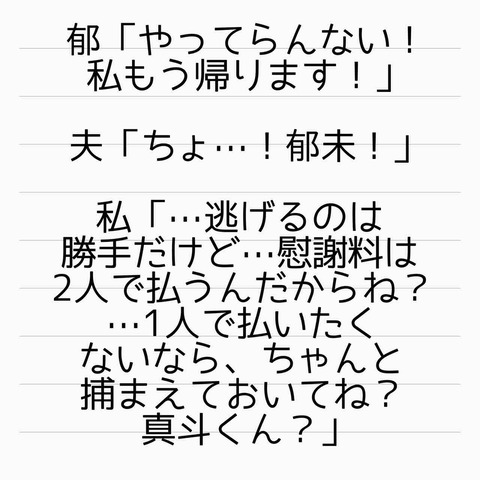 郁「やってらんない！
私もう帰ります！」
夫「ちょ…！郁未！」
私「…逃げるのは
勝手だけど…慰謝料は
2人で払うんだからね？
…1人で払いたく
ないなら、ちゃんと
捕まえておいてね？
真斗くん？」